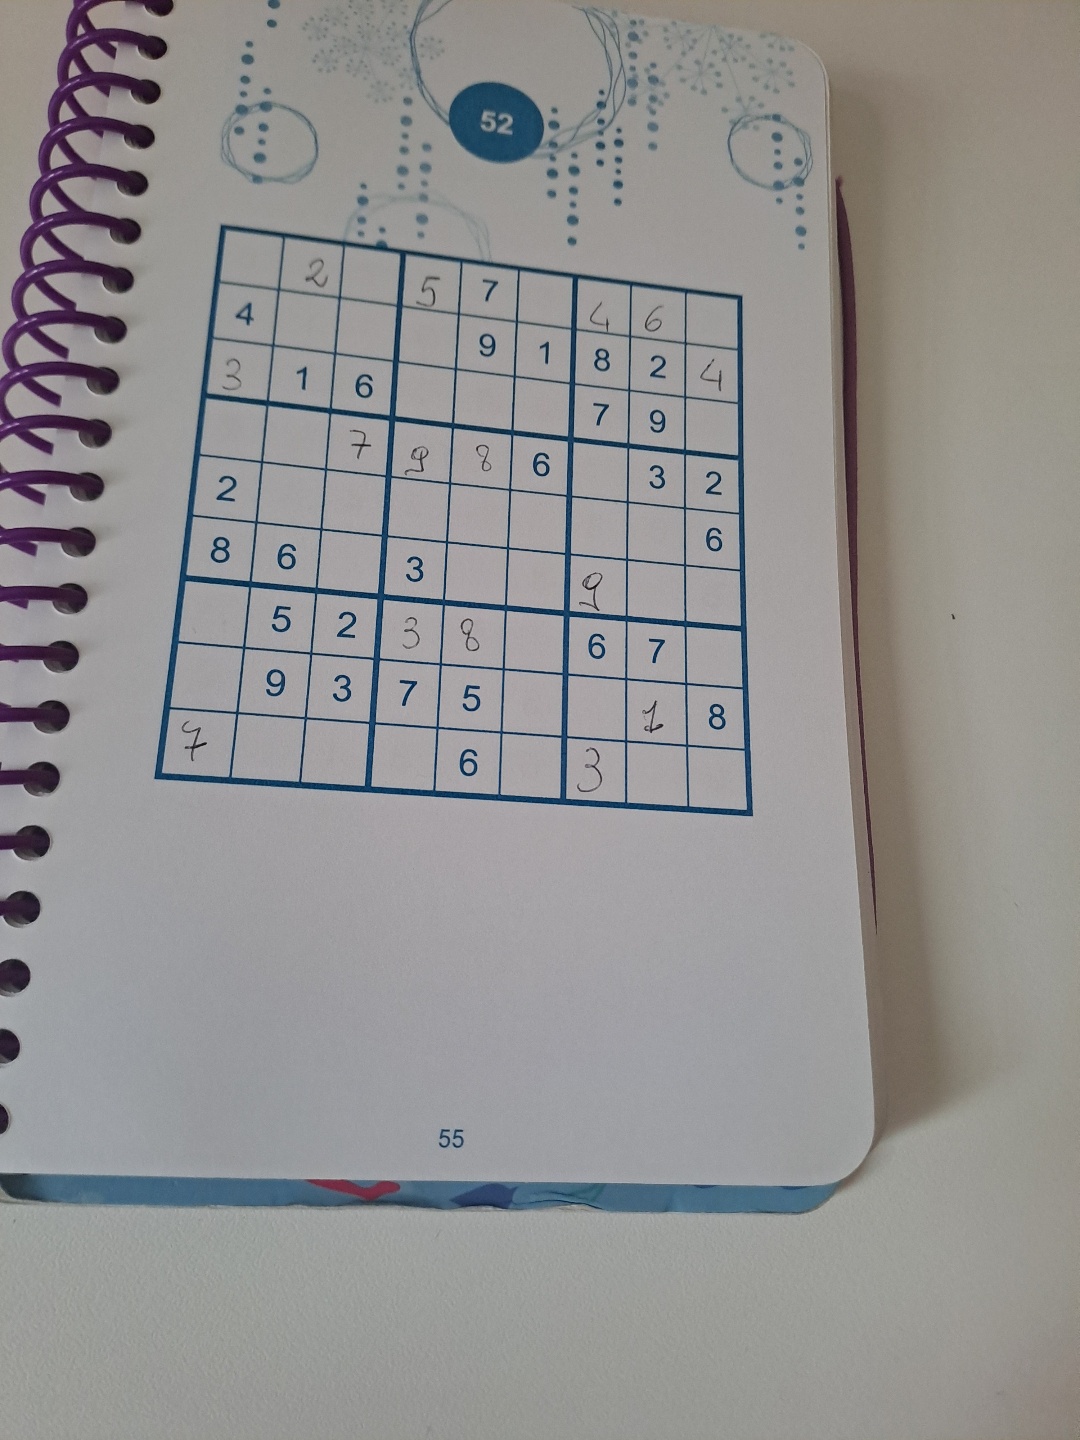 52
2 5 7 4 6
4 9 1 8 2 4
3 1 6 7 9
7 9 8 6 3 2
2 6
8 6 3 9
5 2 3 8 6 7
9 3 7 5 1 8
7 6 3
55